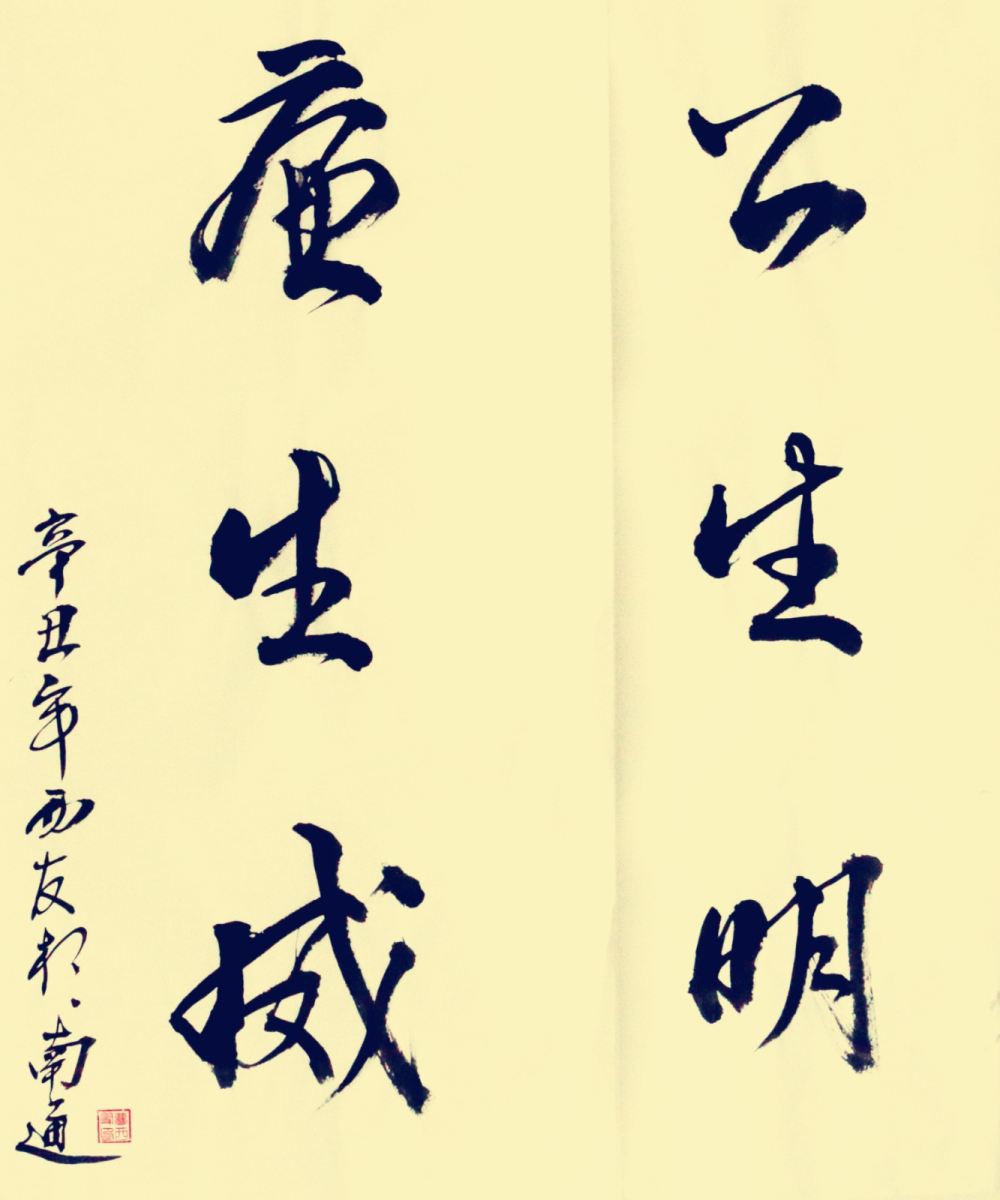 公生明
廉生威
辛丑年西友於南通